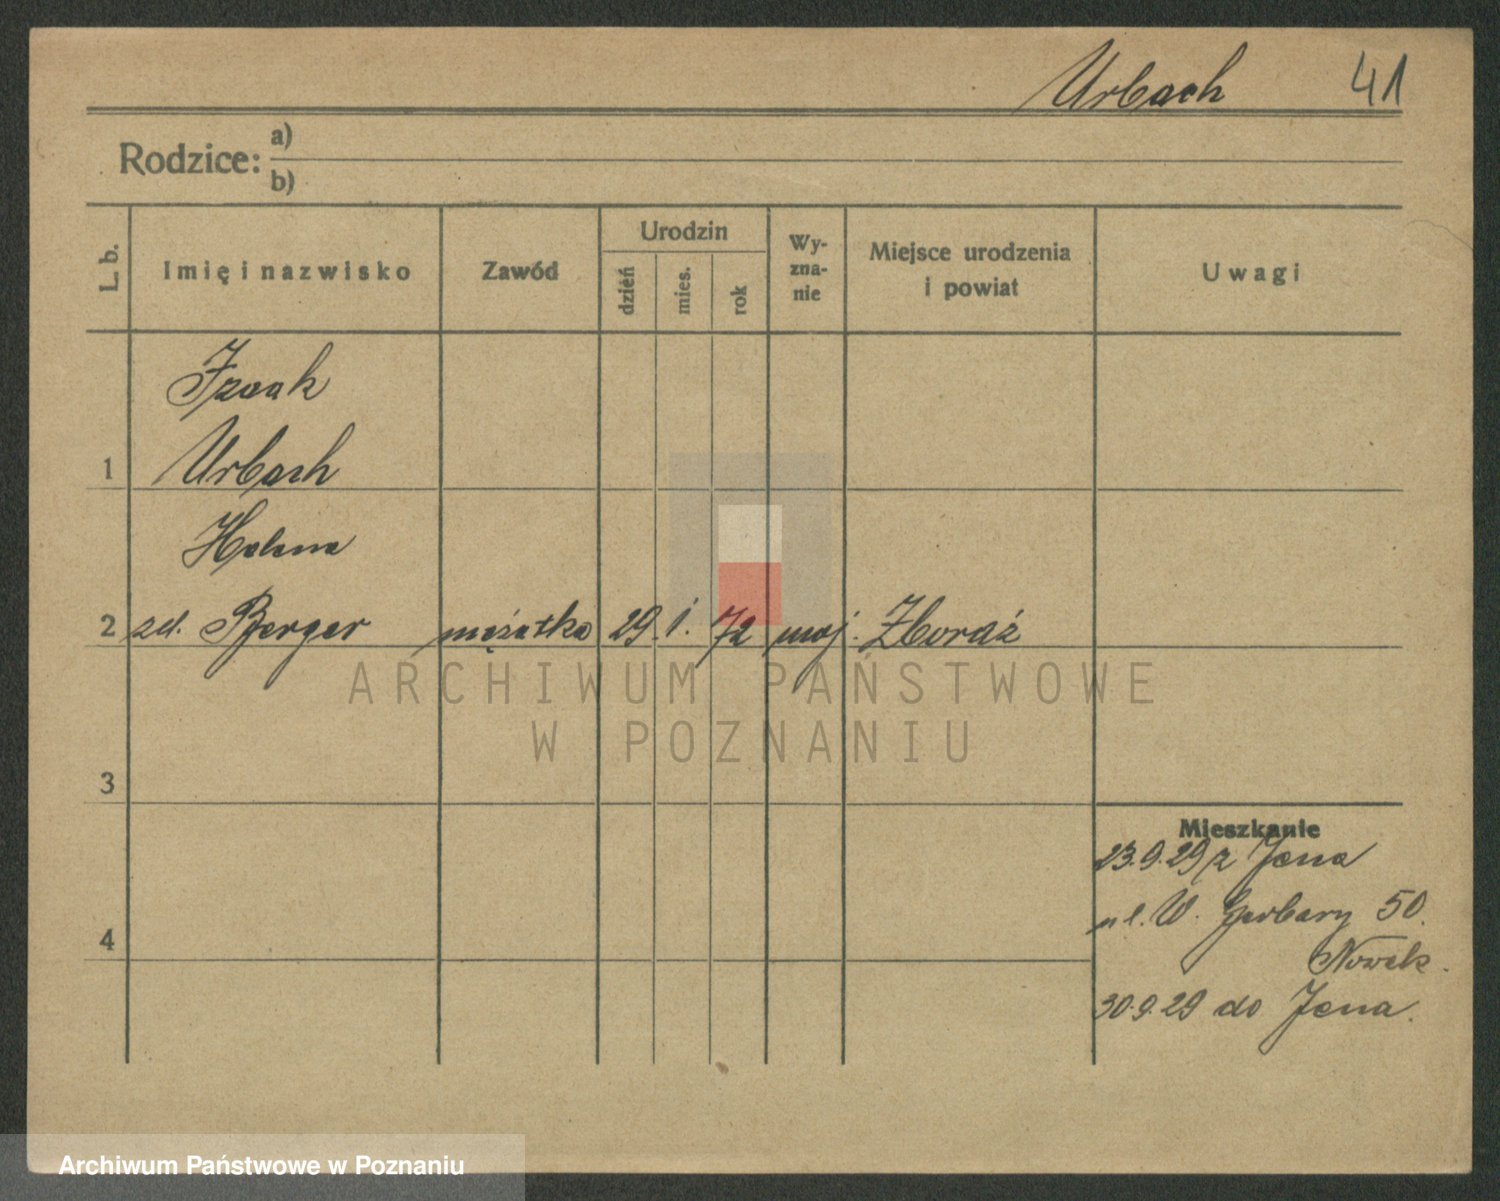 Urbach 41
Rodzice: a)
b)
L. b. Imię i nazwisko Zawód Urodzin dzień mies. rok Wy-zna-nie Miejsce urodzenia i powiat Uwagi
Izaak
1 Urbach
Helena
2 zd. Berger mężatka 29. 1. 72 moj. Zboraź
ARCHIWUM PAŃSTWOWE
W POZNANIU
3
Mieszkanie
23.9.29 z Jena
4 ul. W. Garbary 50.
Nowak.
30.9.29 do Jena.
Archiwum Państwowe w Poznaniu